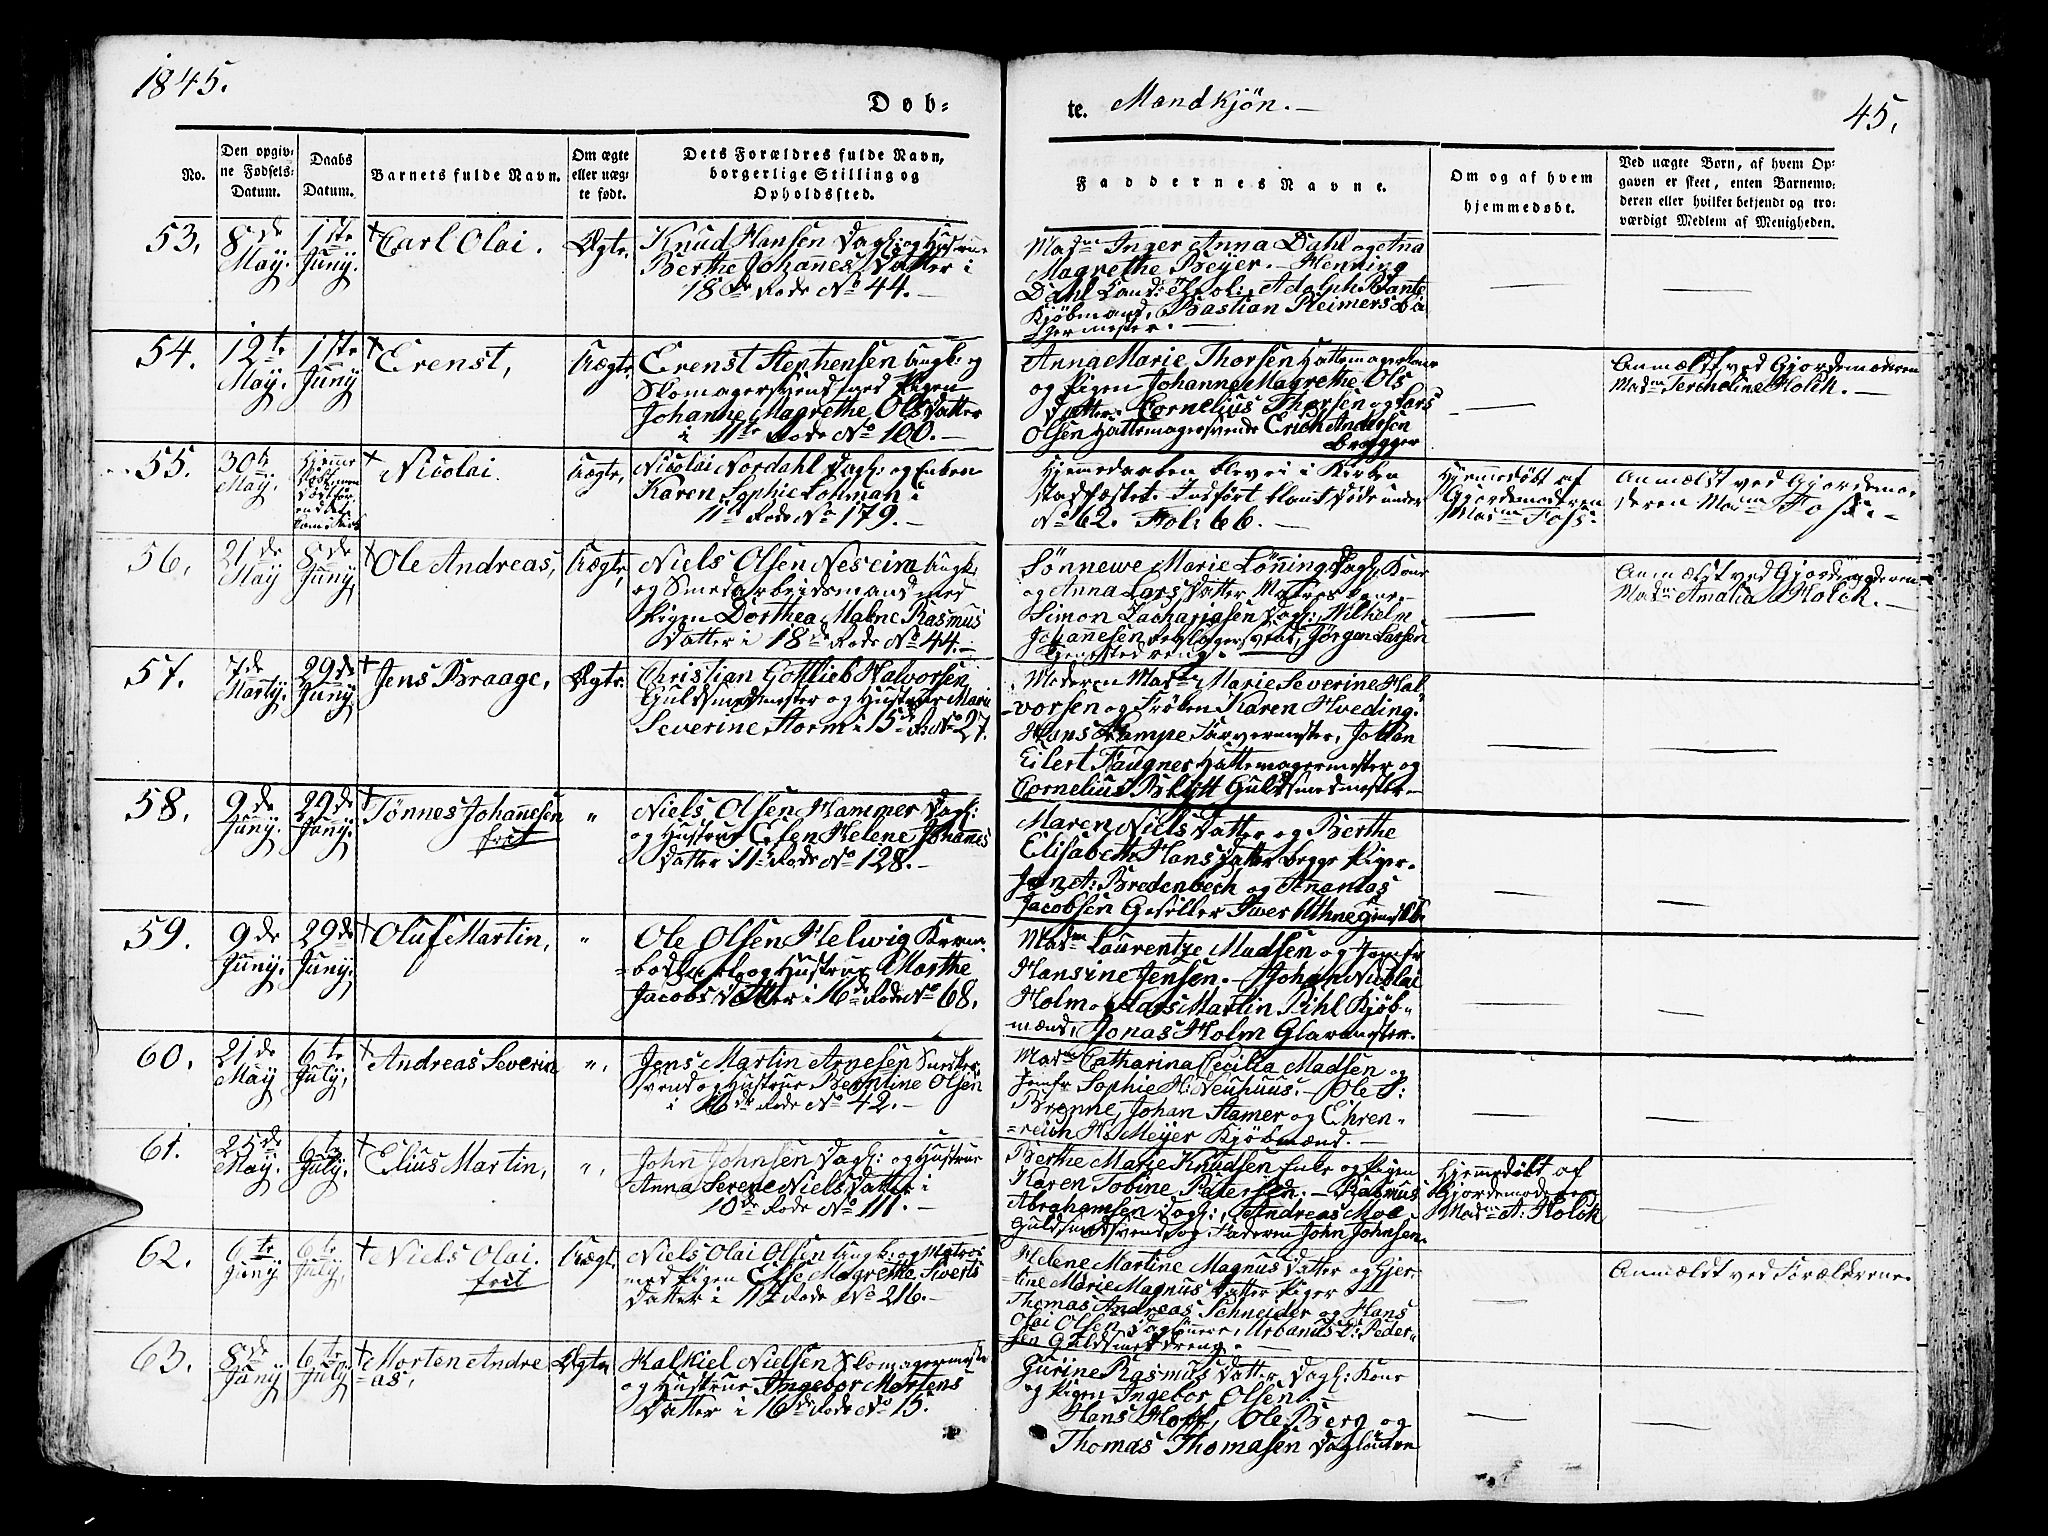 1845.
Døb-
te. Mandkjøn.
45.
No.
Den opgiv-
ne Fødsels-
Datum.
Daabs
Datum.
Barnets fulde Navn.
Om ægte
eller uæg-
te født.
Dets Forældres fulde Navn,
borgerlige Stilling og
Opholdssted.
Faddernes Navne.
Om og af hvem
hjemmedøbt.
Ved uægte Børn, af hvem Op-
gaven er skeet, enten Barnemo-
deren eller hvilket bekjendt og tro-
værdigt Medlem af Menigheden.
53.
8de
May.
1ste
Juny.
Carl Olai.
Ægte.
Knud Hansen Dagl: og Hustrue
Berthe Johannes Datter i
18de Rode No 44.
Madme Inger Anna Dahl og Ana
Magrethe Beyer. Henning
Dahl Adolph
Kjøbmænd, Bastian Reimers Bø
germester.
54.
12te
May.
1ste
Juny
Erenst,
Uægte,
Erenst Stephensen Ungk: og
Skomagersvend med Pigen
Johanne Magrethe Ols Datter
i 11te Rode No 100.
Anna Marie Thorsen Hattemagerkone
og Pigen Johanne Magrethe Ols
Datter. Cornelius Thorsen og Lars
Olsen Hattemagersvende Erich Andersen
Brygger
Anmældt ved Gjordemoderen
Madme Holck.
55.
30te
May.
Nicolai.
Uægte,
Nicolai Nordahl Dagl: og Enken
Karen Sophie Lohman i
11te Rode No 179.
Hjemedaaben blev ei i Kirken
stadfæstet. Indført blant døde under
No 62. Fol: 66.
Hjemmedøbt af
Gjordemoderen
Madme Foss.
Anmældt ved Gjordemo-
deren Madme Foss.
56.
21de
May
8de
Juny,
Ole Andreas,
Uægte,
Niels Olsen Neseim Ungk:
og Smedarbeidsmand med
Pigen Dorthea Malene Rasmus
Datter i 18de Rode No 44.
Sønnewe Marie Lønning Dagl: Kone
og Anna Lars Datter Matros kone
Simon Zachariasen Dagl: Wilhelm
Johannesen svend, Jørgen Larsen
Tjenestedreng.
Anmældt ved Gjordemoderen
Madme Amalia Holck.
57.
7de
Marty.
29de
Juny.
Jens Braage,
Ægte.
Christian Gottlieb Halvorsen,
Guldsmedmester og Hustrue Marie
Severine Storm i 15de R: No 27.
Moderen Madme Marie Severine Hal
vorsen og Frøken Karen Hveding.
Hans Kampe Farvermester, Johan
Eilert Faugner Hattemagermester og
Cornelius Blytt Guldsmedmester
58.
9de
Juny.
29de
Juny.
Tønnes Johannesen
frit
"
Niels Olsen Hammer Dagl:
og Hustrue Elen Helene Johannes
Datter i 11te Rode No 128.
Maren Niels Datter og Berthe
Elisabeth Hans Datter begge Piger.
Jan A: Bredenbech og Ananias
Jacobsen Geseller Iwer Uthne
59.
9de
Juny.
29de
Juny.
Oluf Martin,
"
Ole Olsen Helwig Kram-
bodkarl og Hustrue Marthe
Jacobs Datter i 16de Rode No 68.
Madme Laurentze Madsen og Jomfr
Hansine Jensen. Johan Nicolai
Holm og Hans Martin Pihl Kjøb-
mænd, Jonas Holm Glarmester.
60.
21de
May
6te
July,
Andreas Severin
",
Jens Martin Arnesen Snedker
svend og Hustrue Berntine Olsen
i 16de Rode No 42.
Madme Catharina Cecilia Madsen og
Jomfr Sophie H: Neuhuus. Ole S:
Brønne, Johan Stamer og Ehren-
reich H: Meyer Kjøbmænd.
61.
25de
May.
6te
July.
Elius Martin,
",
John Johnsen Dagl: og Hustrue
Anna Serene Niels Datter i
10de Rode No 111.
Berthe Marie Knudsen Enke og Pigen
Karen Tobine Petersen. Rasmus
Abrahamsen Dagl:, Andreas Moe
Guldsmedsvend og Faderen John Johnsen.
Hjemedøbt af
Gjordemoderen
Madme A: Holck
62.
6te
Juny
6te
July,
Niels Olai.
frit
Uægte,
Niels Olai Olsen Ungk: og Matros
med Pigen Else Magrethe Siverts
Datter i 11te Rode No 216.
Helene Martine Magnus Datter og Gjer-
tine Marie Magnus Datter Piger
Thomas Andreas Schneider og Hans
Olai Olsen Daglønnere, Urbanus C: Peder-
sen Guldsmeddreng.
Anmældt ved Forældrene.
63.
8de
Juny
6te
July
Morten Andre
as,
Ægte,
Halkiel Nielsen Skomagermester
og Hustrue Ingebor Mortens
Datter i 16de Rode No 15.
Gurine Rasmus Datter Dagl: Kone
og Pigen Ingebor Olsen
Hans Hoff, Ole Berg og
Thomas Thomasen Daglønnere